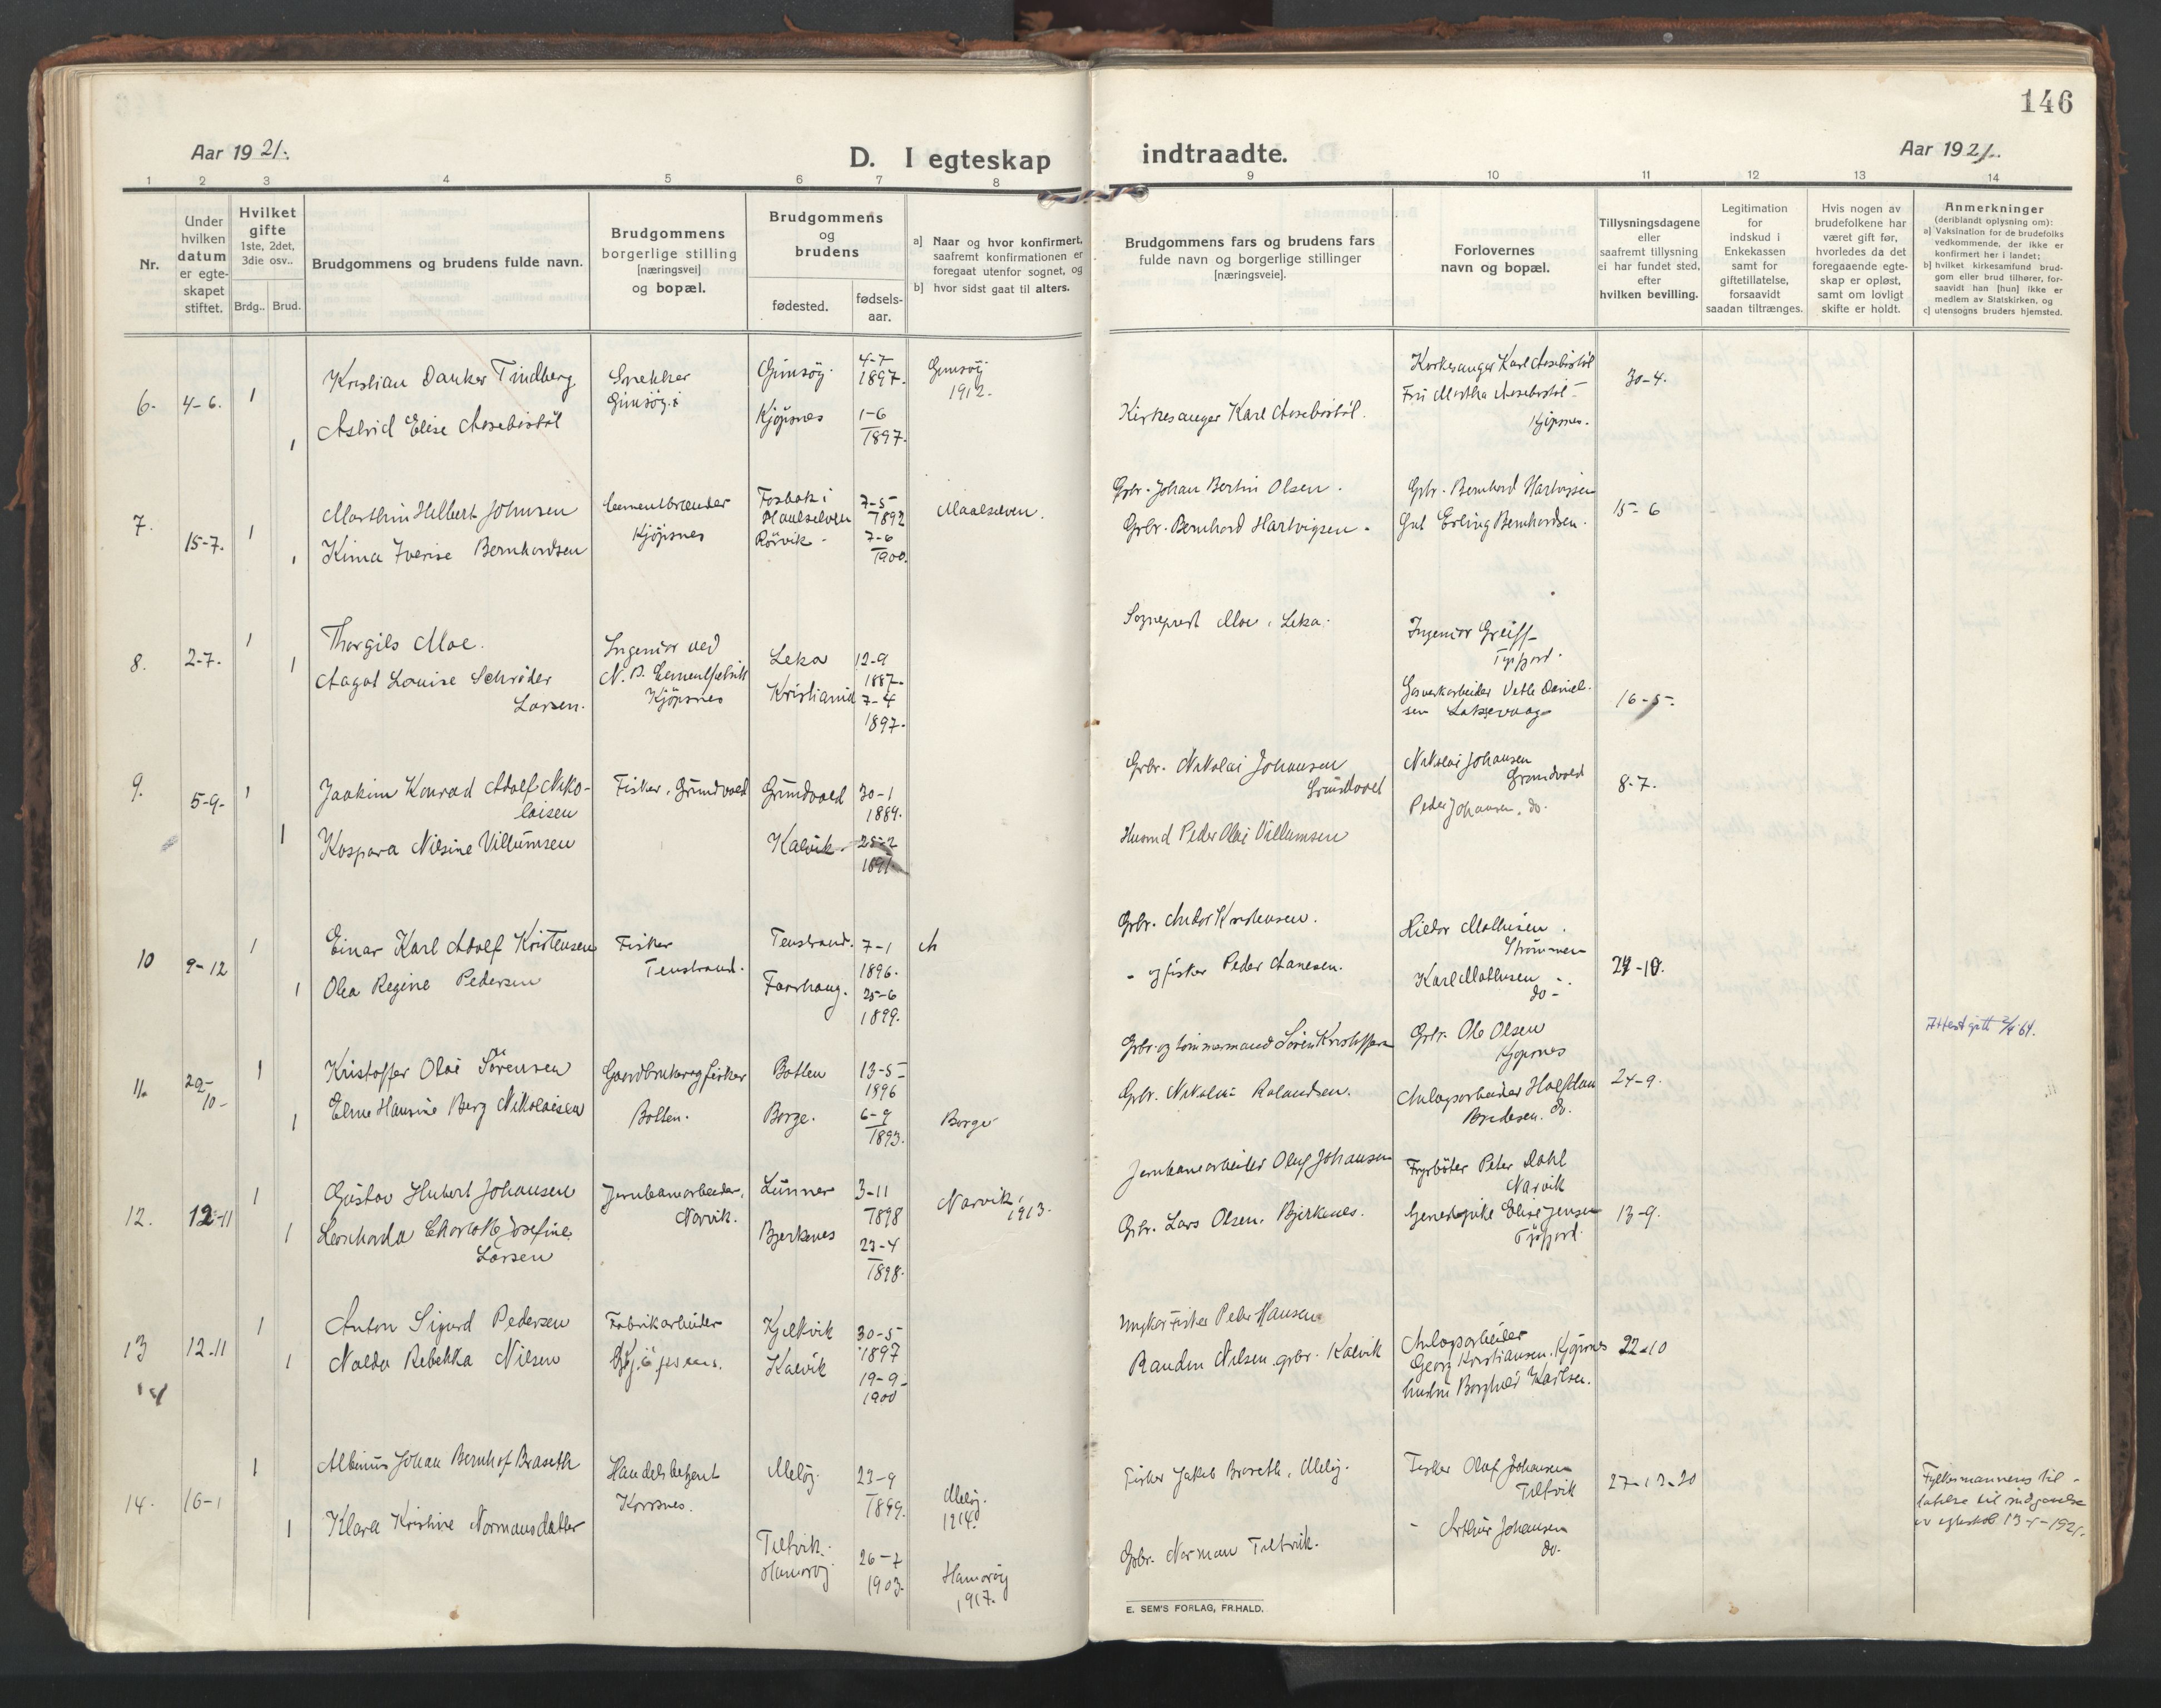 146
Aar 1921.
D. I egteskap
indtraadte.
Aar 1921.
1 2 3 4 5 6 7 8
9 10 11 12 13 14
Nr.
Under
hvilken
datum
er egte-
skapet
stiftet.
Hvilket
gifte
1ste, 2det,
3die osv..
Brdg.. Brud.
Brudgommens og brudens fulde navn.
Brudgommens
borgerlige stilling
[næringsvei]
og bopæl.
Brudgommens
og
brudens
fødested.
fødsels-
aar.
a] Naar og hvor konfirmert,
saafremt konfirmationen er
foregaat utenfor sognet, og
b] hvor sidst gaat til alters.
Brudgommens fars og brudens fars
fulde navn og borgerlige stillinger
[næringsveie].
Forlovernes
navn og bopæl.
Tillysningsdagene
eller
saafremt tillysning
ei har fundet sted,
efter
hvilken bevilling.
Legitimation
for
indskud i
Enkekassen
samt for
giftetillatelse,
forsaavidt
saadan tiltrænges.
Hvis nogen av
brudefolkene har
været gift før,
hvorledes da det
foregaaende egte-
skap er opløst,
samt om lovligt
skifte er holdt.
Anmerkninger
(deriblandt oplysning om):
a] Vaksination for de brudefolks
vedkommende, der ikke er
konfirmert her i landet;
b] hvilket kirkesamfund brud-
gom eller brud tilhører, for-
saavidt han [hun] ikke er
medlem av Statskirken, og
c] utensogns bruders hjemsted.
6. 4-6. 1
Kristian Danker Tindberg
Snekker
Gimsøy
Gimsøy. 4-7
1897.
Gimsøy
1912.
1 Astrid Elise
Kjøpsnes 1-6
1897.
Kirkesanger Karl
Kirkesanger Karl
Fru Martha
Kjøpsnes.
30-4.
7. 15-7. 1
Marthin Hilbert Johnsen
Cementbrænder
Kjøpsnes
Fosbak i
Maalselven
7-5
1892
Maalselven.
1 Kima Iverise Bernhardsen
Rörvik - 7-6
1900.
Grbr. Johan Bertin Olsen.
Grbr. Bernhard Hartvigsen -
Grbr. Bernhard Hartvigsen
Gut Erling Bernhardsen.
15-6
8. 2-7. 1
Thorgils Moe.
Ingeniør ved
N. P. Cementfabrik
Kjöpsnes
Leka 12-9
1887.
1 Aagot Louise Schrøder
Larsen.
Kristiania 7-4
1897.
Sogneprest Moe, Leka.
Ingeniør Greiff
Tysfjord.
Gasverkarbeider Vetle Daniel-
sen Laksevaag
16-5.
9. 5-9. 1
Joakim Konrad Adolf Niko-
laisen
Fisker, Grundvold
Grundvold 30-1
1889.
1 Kaspara Nilsine Villumsen
Kalvik. 25-2
1891.
Grbr. Nikolai Johansen
Husmd Peder Olai Villumsen
Nikolai Johansen
Grundvold
Peder Johansen, do.
8-7.
10 9-12 1
Einar Karl Adolf Kristensen
Fisker
Tenstrand.
Tenstrand. 7-1
1896.
1 Olea Regine Pedersen
Forrhaug. 25-6
1899.
Grbr. Andor Kristensen.
- og fisker Peder Hanesen.
Strømmen
do -
24-10.
11. 29-
10- 1
Kristoffer Olai Sörensen
Gaardbruker og fisker
Botten.
Botten 13-5
1896
1 Elme Hansine Berg Nikolaisen
Borge. 6-9
1893.
Borge
Grbr. og tømmermand Sören Kristoffersen
Grbr. Nikolai Rolandsen.
Grbr. Ole Olsen
Kjøpsnes
Anlegsarbeider
Bredesen. do.
24-9.
12. 12-11 1
Gustav Hubert Johansen
Jernbanearbeider,
Narvik.
Lunner 3-11
1898
Narvik,
1913.
1 Leonharda Charlotte Josefine
Larsen
Bjerknes 23-4
1898.
Jernbanearbeider Oluf Johansen
Grbr. Lars Olsen, Bjerknes.
Fyrbøter Peter Dahl
Narvik
Elise Jensen
Tysfjord.
13-9.
13 12-11 1
Anton Sigurd Pedersen
Fabrikarbeider
Kjöpsnes.
Kjelkvik 30-5
1897
1 Nalda Rebekka Nilsen
Kalvik 19-9
1900
Fisker Peder Hansen
Randin Nilsen. grbr. Kalvik
Anlegsarbeider
Georg Kristiansen. Kjøpsnes
hustru Borghild Karlsen.
22-10
14. 16-1 1
Albinus Johan Bernhof Braseth
Handelsbetjent
Korsnes.
Meløy. 23-9
1899.
Meløy.
1914.
1 Klara Kristine Normansdatter
Tiltvik.
Hamarøy 26-7
1903.
Hamarøy
1917.
Fisker Jakob Braseth, Meløy.
Grbr. Norman Tiltvik.
Fisker Olaf Johansen
Tiltvik
- Arthur Johansen
do.
27-12-20
Fylkesmannens til-
latelse til indgaaelse
av egteskab 13-1-1921.
E. SEM'S FORLAG, FR.HALD.